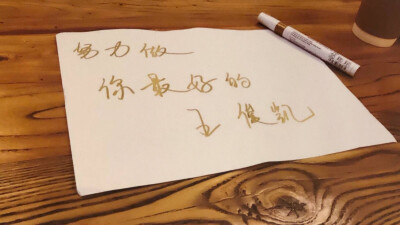 努力做
你最好的
王俊凯